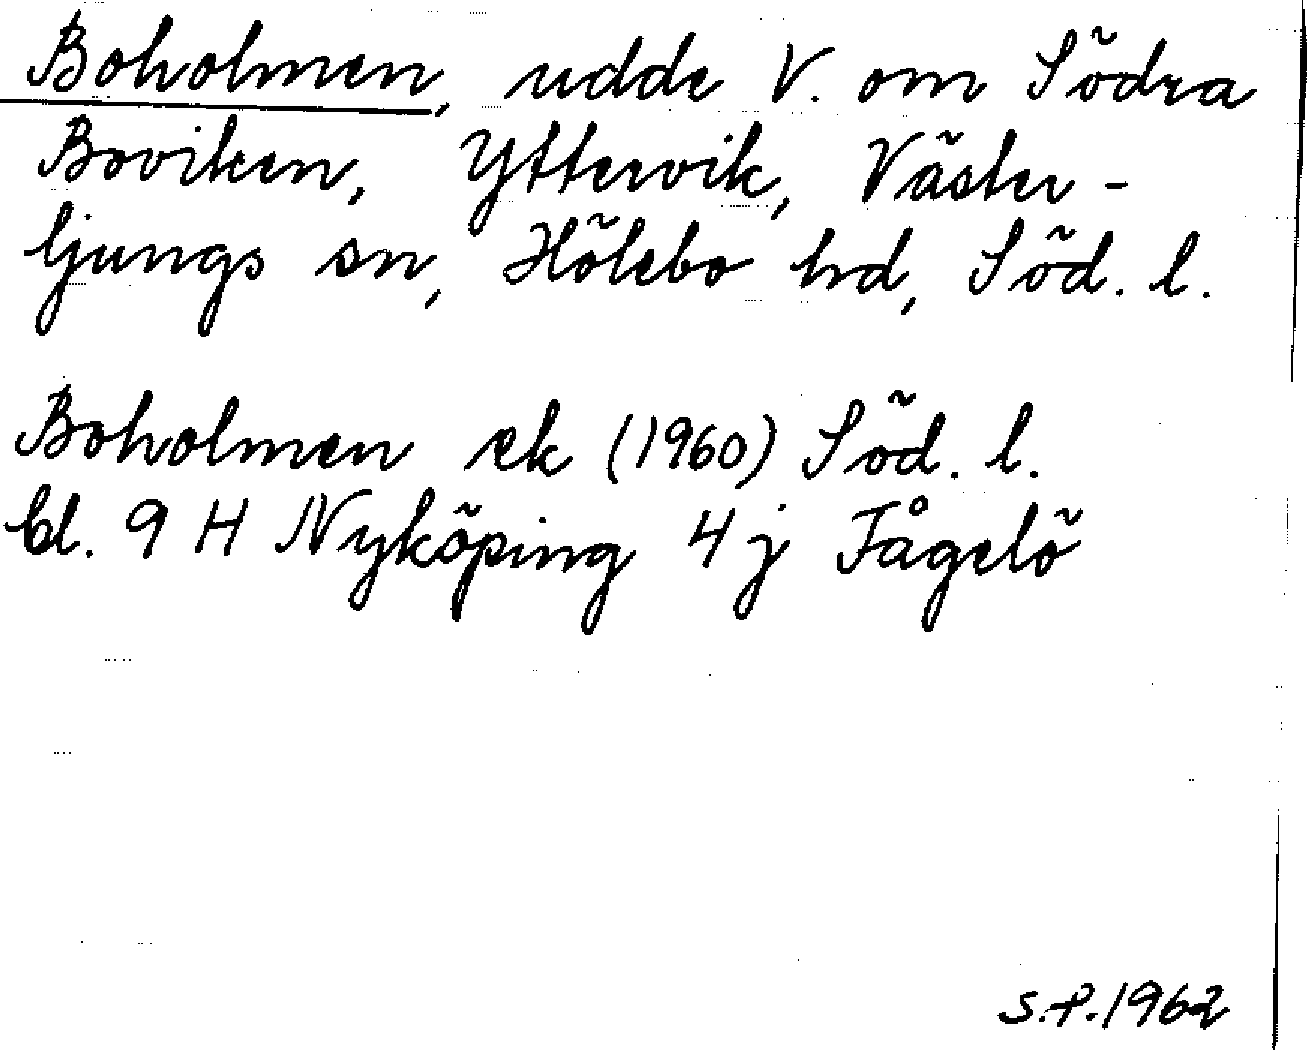 Boholmen, udde V. om Södra
Boviken, Yttervik, Väster-
ljungs sn, Hölebo hd, Söd. l.
Boholmen ek (1960) Söd. l.
bl. 9 H Nyköping 4 j Fågelö
S.P. 1962